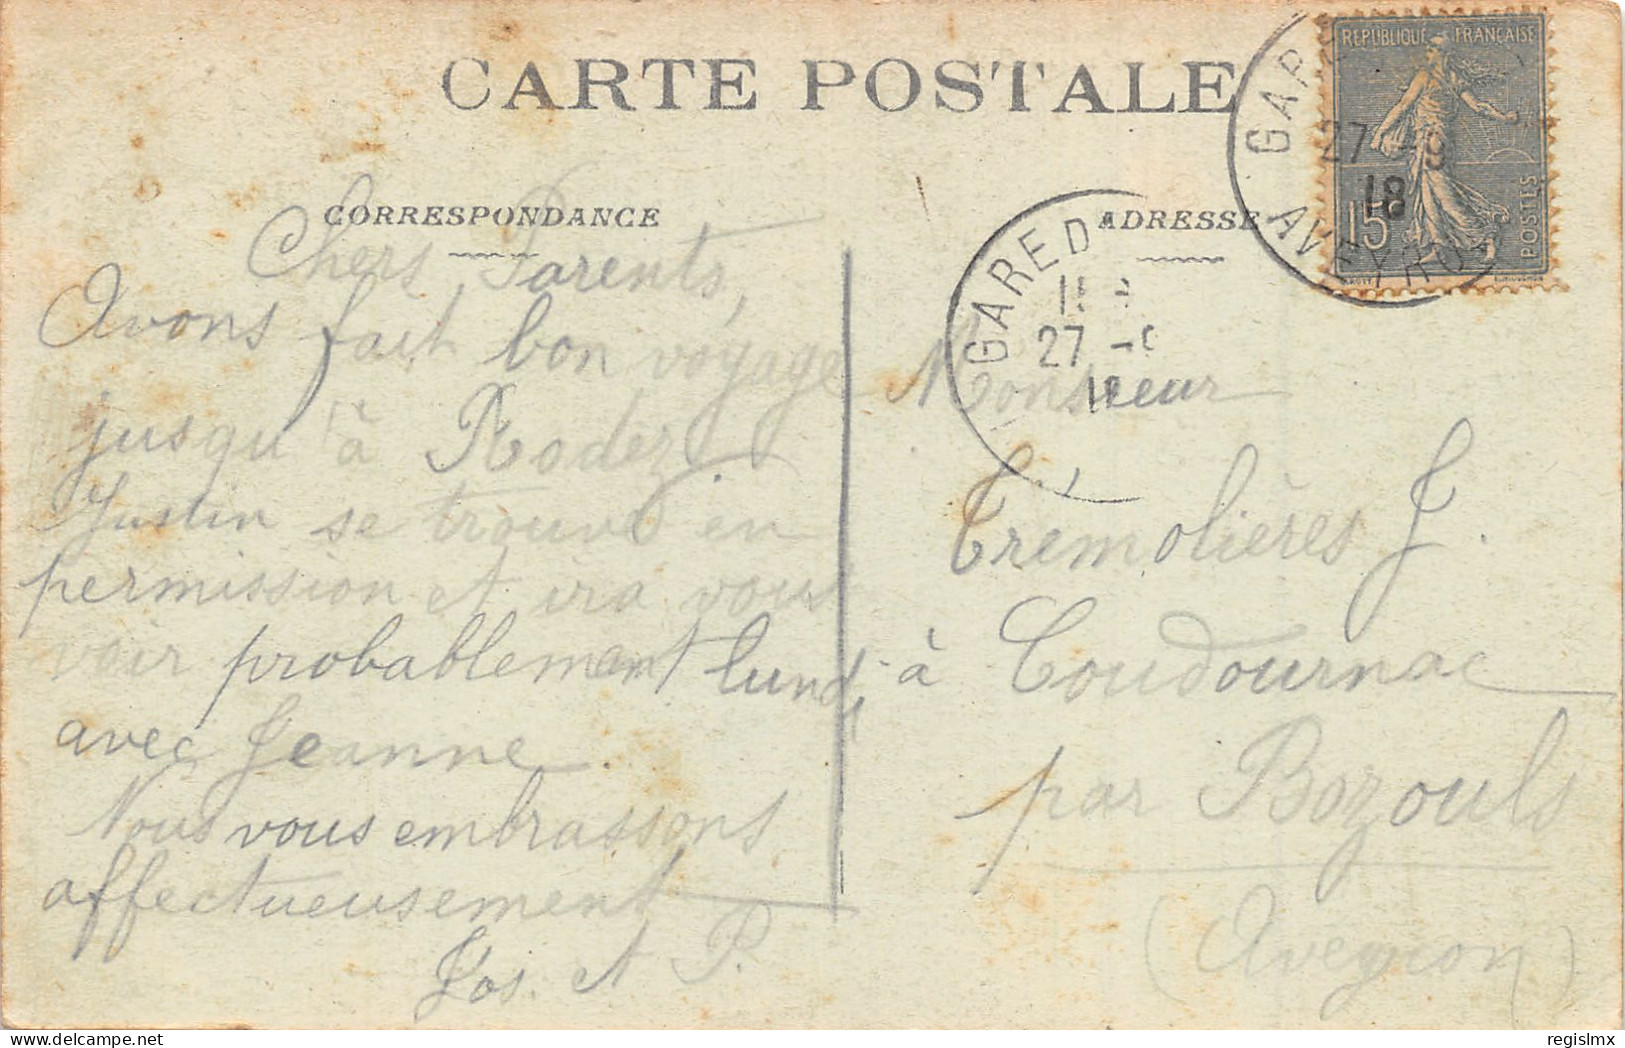 CARTE POSTALE
CORRESPONDANCE
Chers Parents,
Avons fait bon voyage
jusqu'à Rodez
Justin se trouve en
permission et ira vous
voir probablement lundi
avec Jeanne.
Nous vous embrassons
affectueusement
Jos. et P.
ADRESSE
Monsieur
Tremolières J.
à Coudournac
par Bozouls
(Aveyron)
REPUBLIQUE FRANÇAISE
15c
POSTES
GARE
27 -9
18
AVEYRON
GARE D
27 -9
regislmx